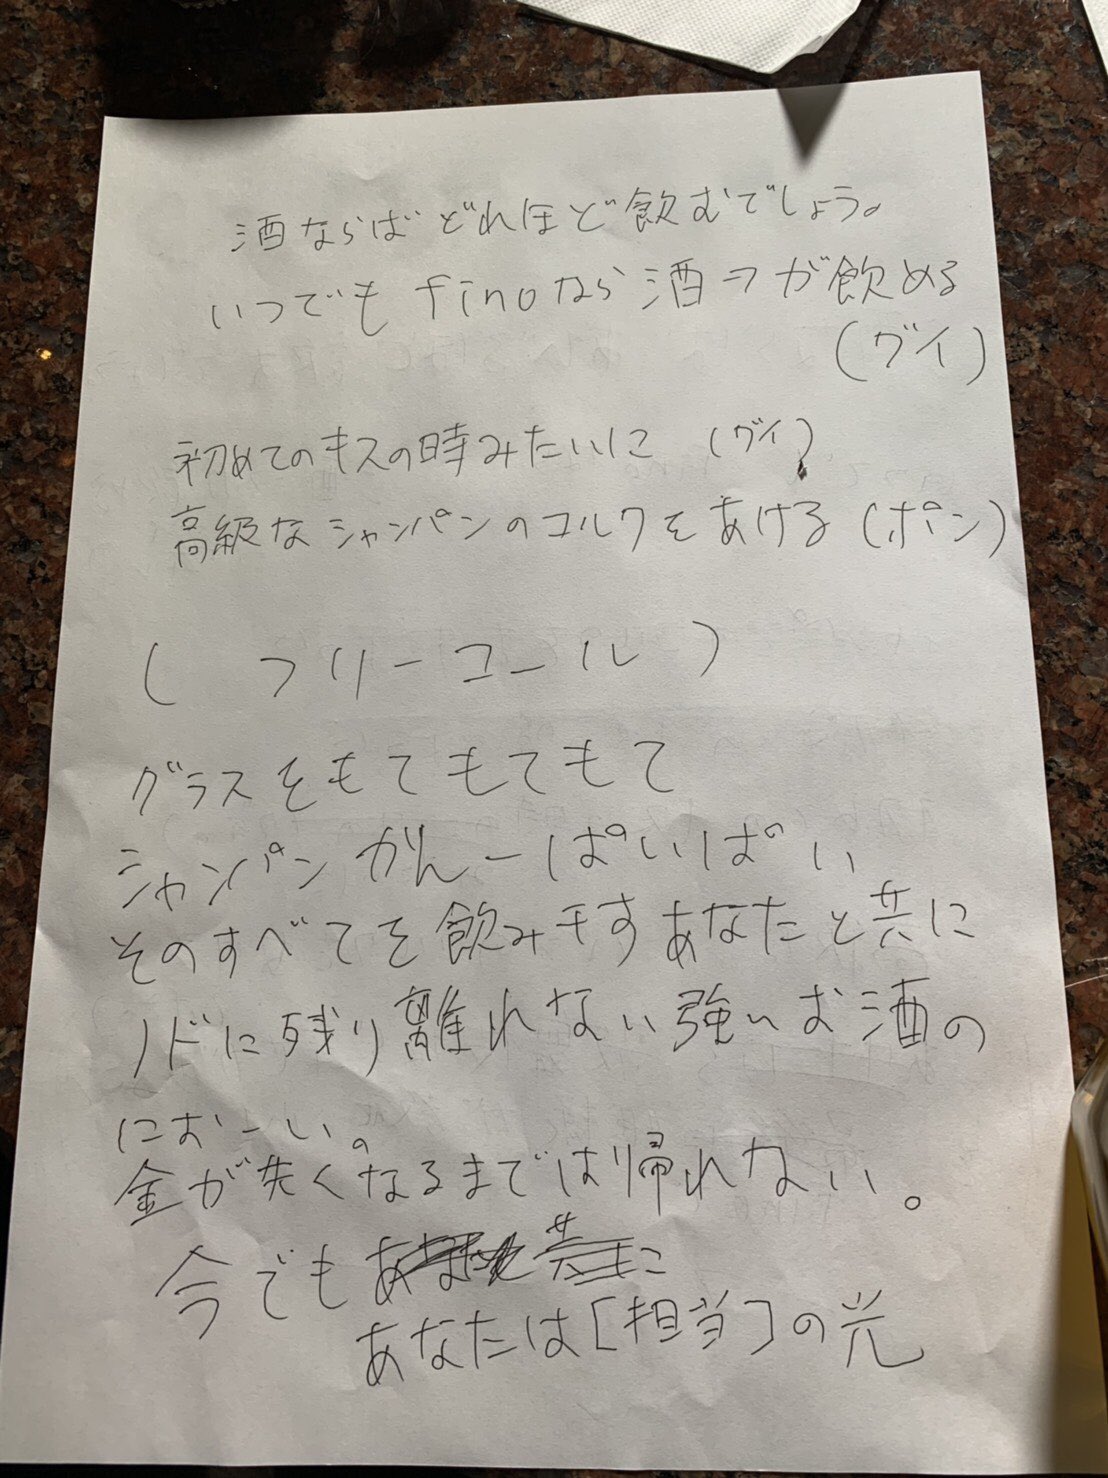 酒ならばどれほど飲むでしょう。
いつでもfinoなら酒→が飲める
(グイ)
初めてのキスの時みたいに (グイ)
高級なシャンパンのコルクをあける (ポン)
( フリーコール )
グラスをもてもてもて
シャンパンかんーぱいぱい
そのすべてを飲み干すあなたと共に
ノドに残り離れない強いお酒の
におーい。
金が失くなるまでは帰れない。
今でも
あなたは[担当]の光